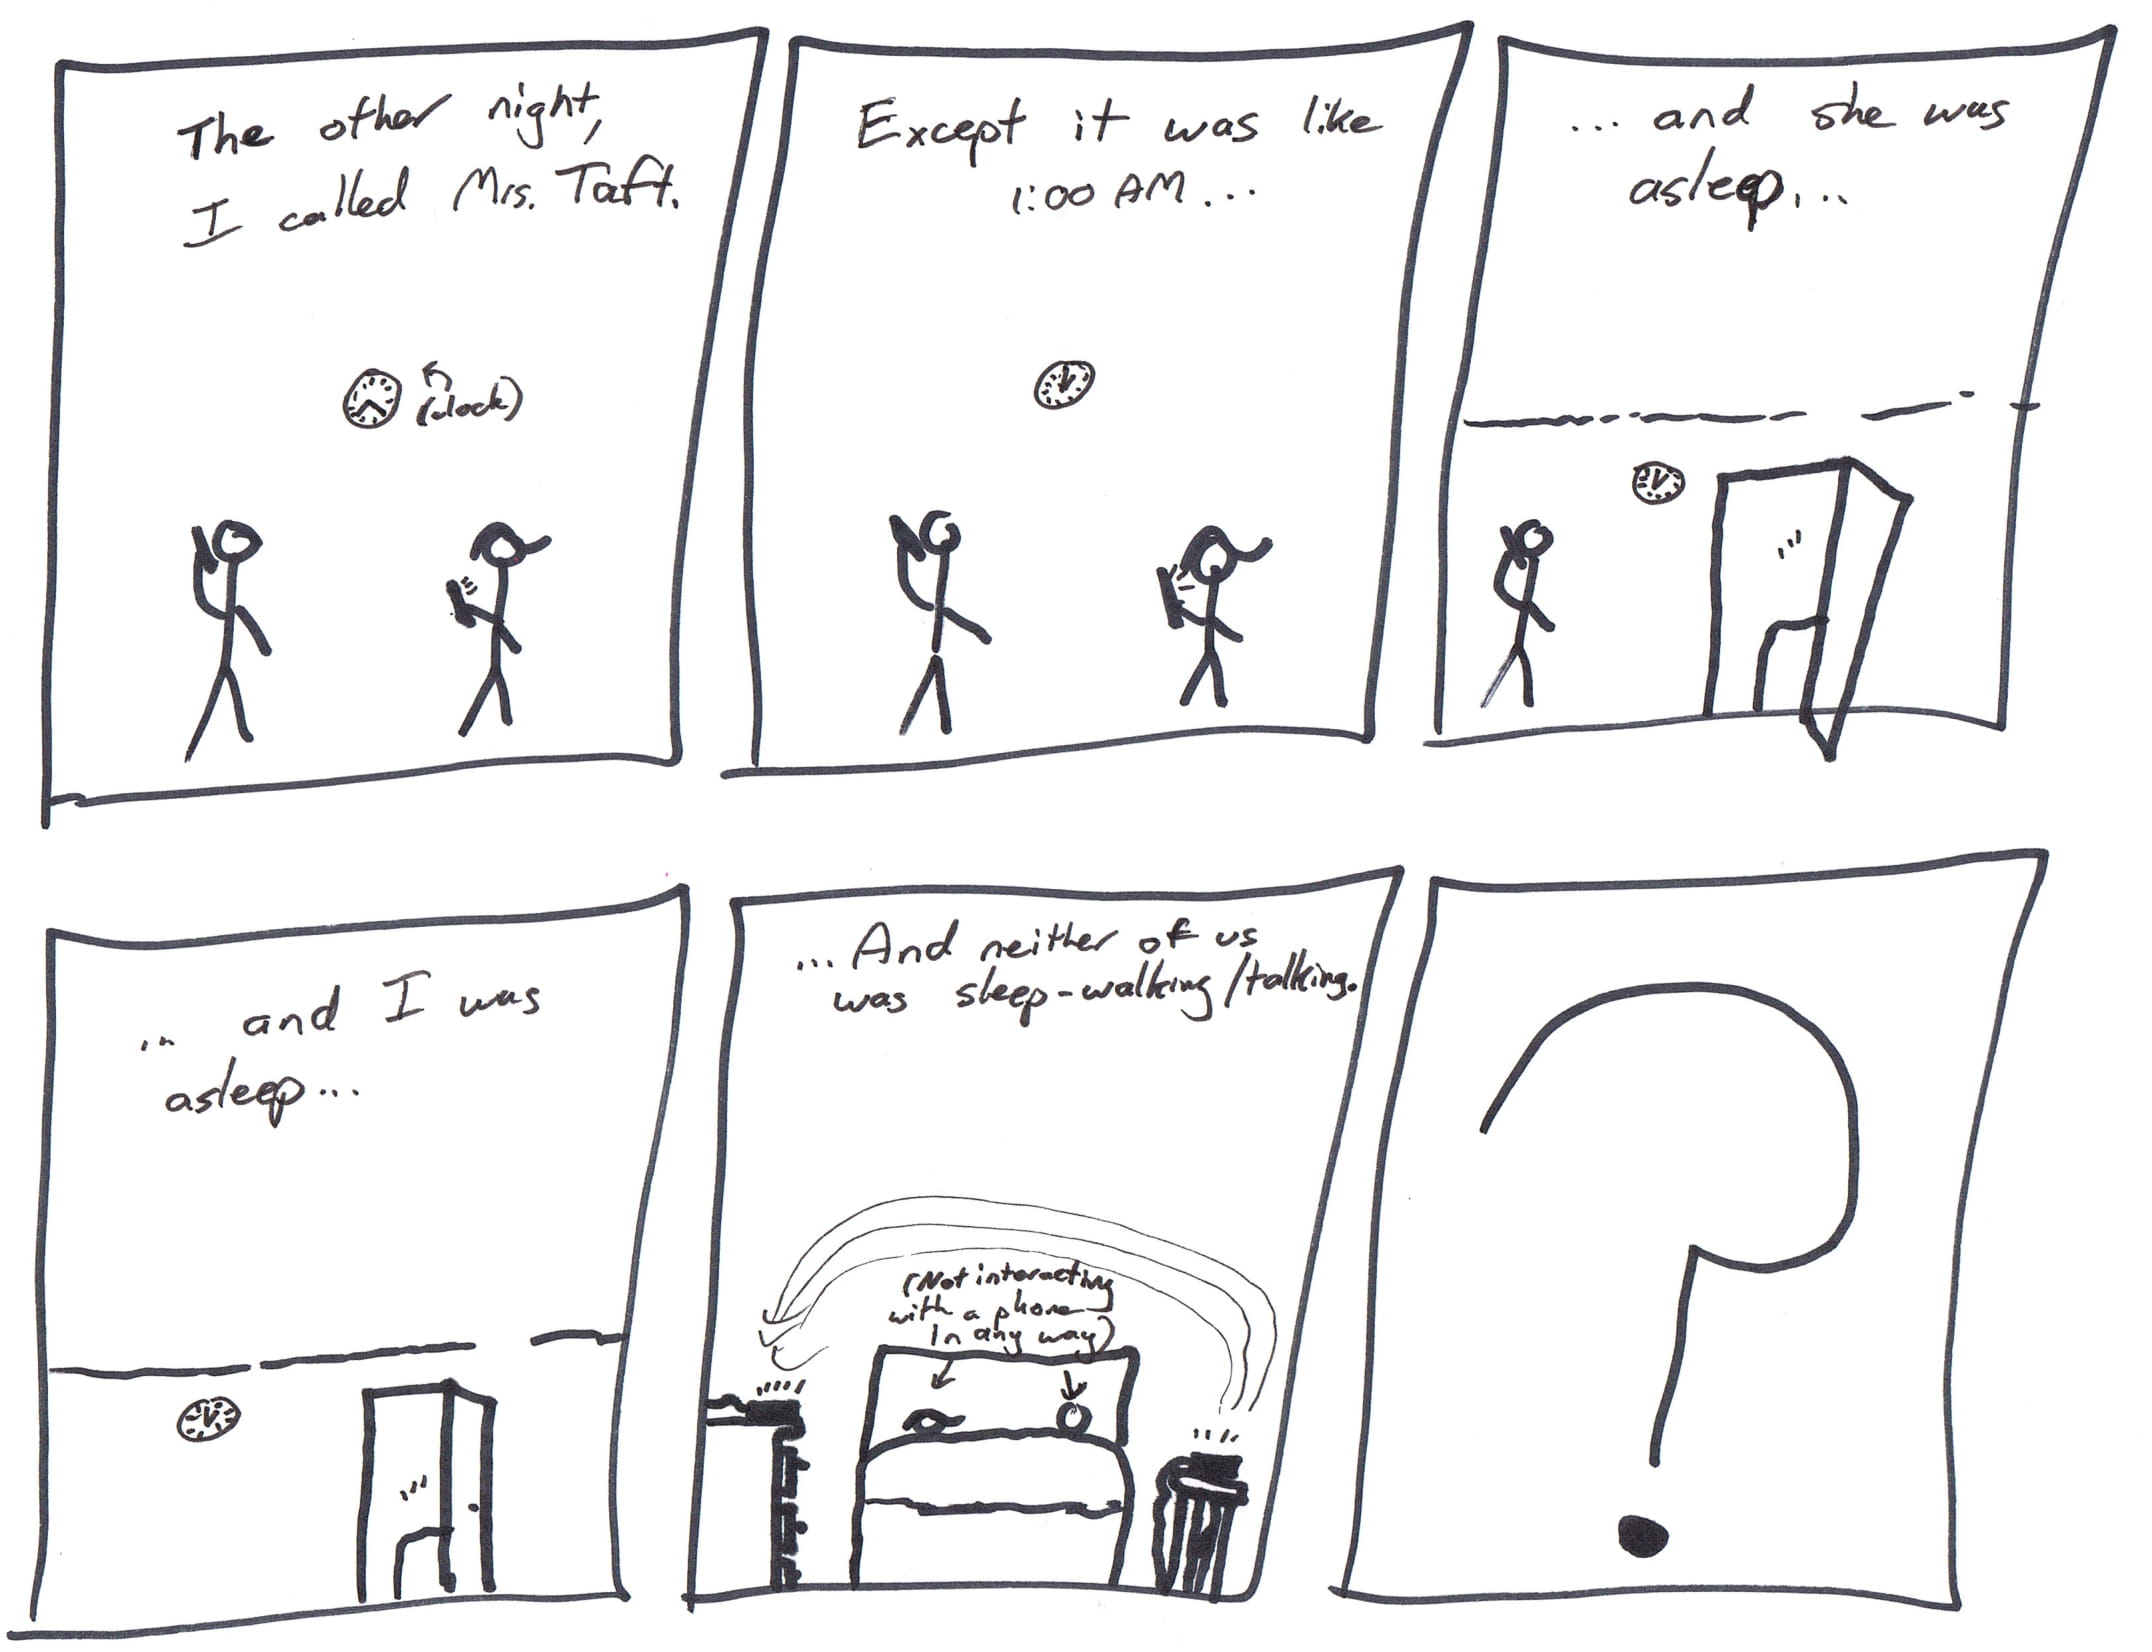 The other night,
I called Mrs. Taft.
(clock)
Except it was like
1:00 AM...
... and she was
asleep...
... and I was
asleep...
... And neither of us
was sleep-walking/talking.
(Not interacting
with a phone
in any way)
?